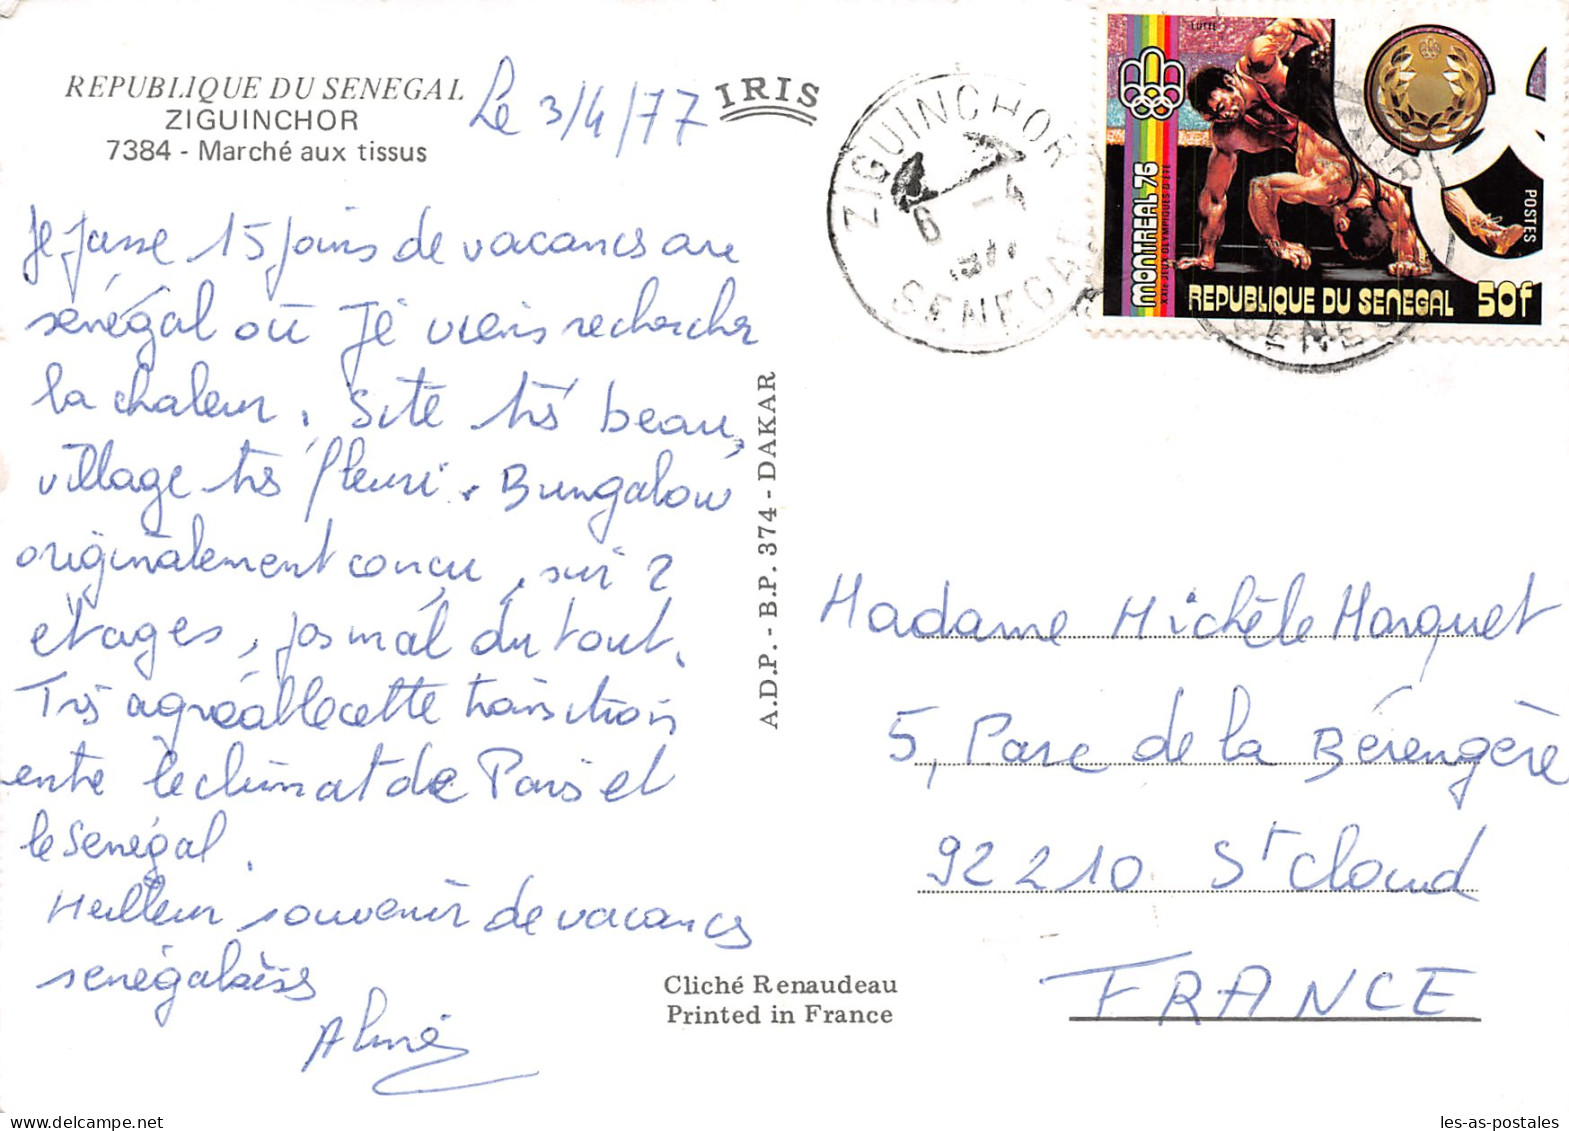 REPUBLIQUE DU SENEGAL
ZIGUINCHOR
7384 - Marché aux tissus
Le 3/4/77
IRIS
Je passe 15 jours de vacances au
sénégal où Je viens rechercher
la chaleur. Site très beau,
village très fleuri. Bungalow
originalement conçu, sur 2
etages, pas mal du tout.
Très agréable cette transition
entre le climat de Paris et
le Senégal.
Meilleur souvenir de vacances
senégalaises
A.D.P. - B.P. 374 - DAKAR
Cliché Renaudeau
Printed in France
ZIGUINCHOR
6 -4
1977
SENEGAL
LUTTE
MONTREAL 76
XXIe JEUX OLYMPIQUES D'ETE
POSTES
REPUBLIQUE DU SENEGAL 50f
Madame Michèle Marquet
5, Parc de la Bérengère
92210 St Cloud
FRANCE
les-as-postales